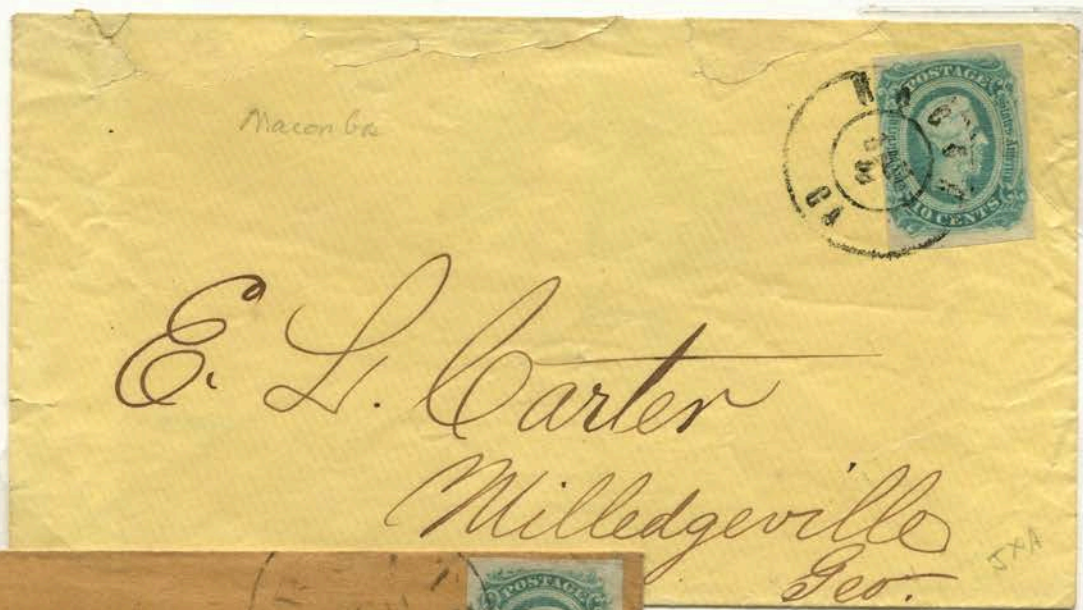 Macon Ga
POSTAGE
10 CENTS
E. L. Carter
Milledgeville
Geo.
JXA
POSTAGE